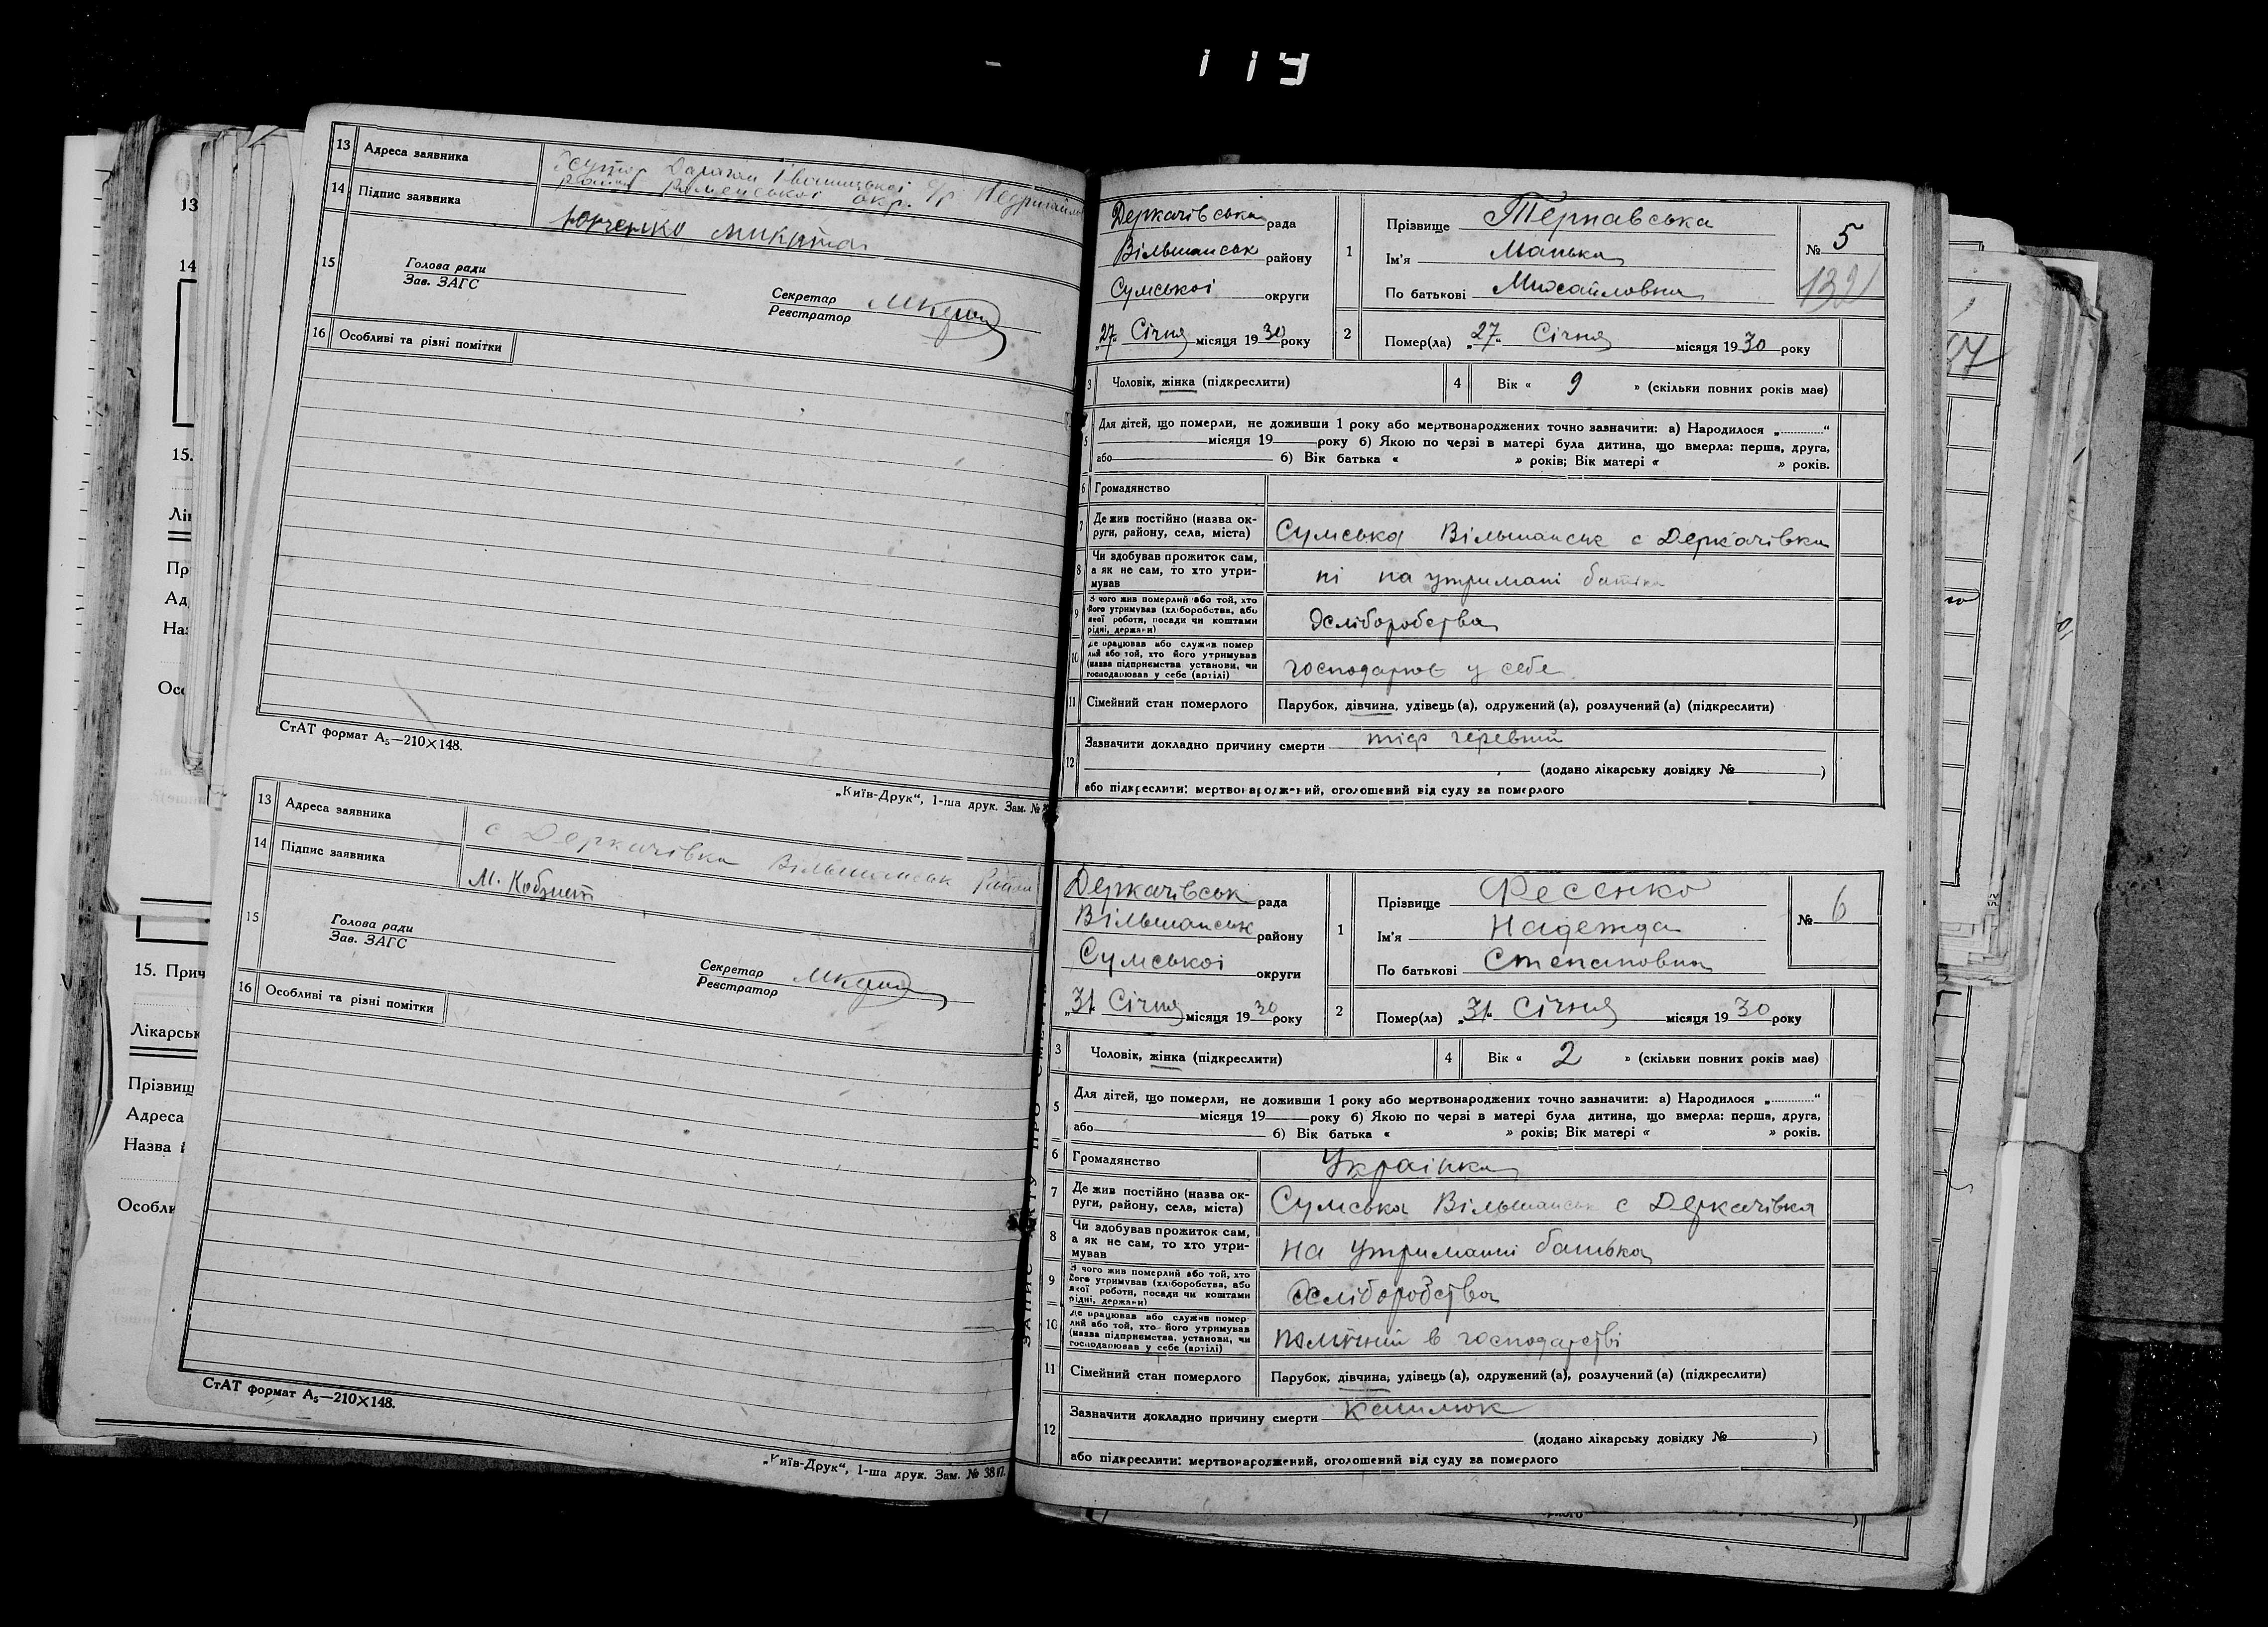 13 Адреса заявника Хутор Івашицької с/р
району Роменської окр.
14 Підпис заявника Юрченко Микита
15 Голова ради
Зав. ЗАГС
Секретар
Реєстратор
16 Особливі та різні помітки
СтАТ формат А5—210×148.
„Київ-Друк“, 1-ша друк. Зам. №
13 Адреса заявника с Деркачівка Вільшанськ
14 Підпис заявника М. Кобзист
15 Голова ради
Зав. ЗАГС
Секретар
Реєстратор
16 Особливі та різні помітки
СтАТ формат А5—210×148.
„Київ-Друк“, 1-ша друк. Зам. №
Деркачівська рада
Вільшанськ району
Сумської округи
„27“ Січня місяця 1930 року
1 Прізвище Тернавська
Ім'я Манька
По батькові Михайловна
№ 5
132
2 Помер(ла) „27“ Січня місяця 1930 року
3 Чоловік, жінка (підкреслити) 4 Вік « 9 » (скільки повних років має)
5 Для дітей, що померли, не доживши 1 року або мертвонароджених точно зазначити: а) Народилося „............“
місяця 19 року б) Якою по черзі в матері була дитина, що вмерла: перша, друга,
або б) Вік батька « » років; Вік матері « » років.
6 Громадянство
7 Де жив постійно (назва ок-
руги, району, села, міста) Сумська Вільшанськ с Деркачівка
8 Чи здобував прожиток сам,
а як не сам, то хто утри-
мував ні на утримані батька
9 З чого жив померлий або той, хто
його утримував (хліборобства, або
якої роботи, посади чи коштами
рідні, держави) Хліборобства
10 Де працював або служив помер
лий або той, хто його утримував
(назва підприємства установи, чи
господарював у себе (артілі) господарює у себе
11 Сімейний стан померлого Парубок, дівчина, удівець (а), одружений (а), розлучений (а) (підкреслити)
12 Зазначити докладно причину смерти тіф черевний
(додано лікарську довідку № )
або підкреслити: мертвонароджений, оголошений від суду за померлого
Деркачівськ рада
Вільшанськ району
Сумської округи
„31“ Січня місяця 1930 року
1 Прізвище Фесенко
Ім'я Надежда
По батькові Степановна
№ 6
2 Помер(ла) „31“ Січня місяця 1930 року
3 Чоловік, жінка (підкреслити) 4 Вік « 2 » (скільки повних років має)
5 Для дітей, що померли, не доживши 1 року або мертвонароджених точно зазначити: а) Народилося „............“
місяця 19 року б) Якою по черзі в матері була дитина, що вмерла: перша, друга,
або б) Вік батька « » років; Вік матері « » років.
6 Громадянство Українка
7 Де жив постійно (назва ок-
руги, району, села, міста) Сумська Вільшанськ с Деркачівка
8 Чи здобував прожиток сам,
а як не сам, то хто утри-
мував на утриманні батька
9 З чого жив померлий або той, хто
його утримував (хліборобства, або
якої роботи, посади чи коштами
рідні, держави) Хліборобства
10 Де працював або служив помер
лий або той, хто його утримував
(назва підприємства, установи, чи
господарював у себе (артілі) в господарстві
11 Сімейний стан померлого Парубок, дівчина, удівець (а), одружений (а), розлучений (а) (підкреслити)
12 Зазначити докладно причину смерти кашлюк
(додано лікарську довідку № )
або підкреслити: мертвонароджений, оголошений від суду за померлого
15. Прич
Лікарськ
Прізвищ
Адреса
Назва
Особли